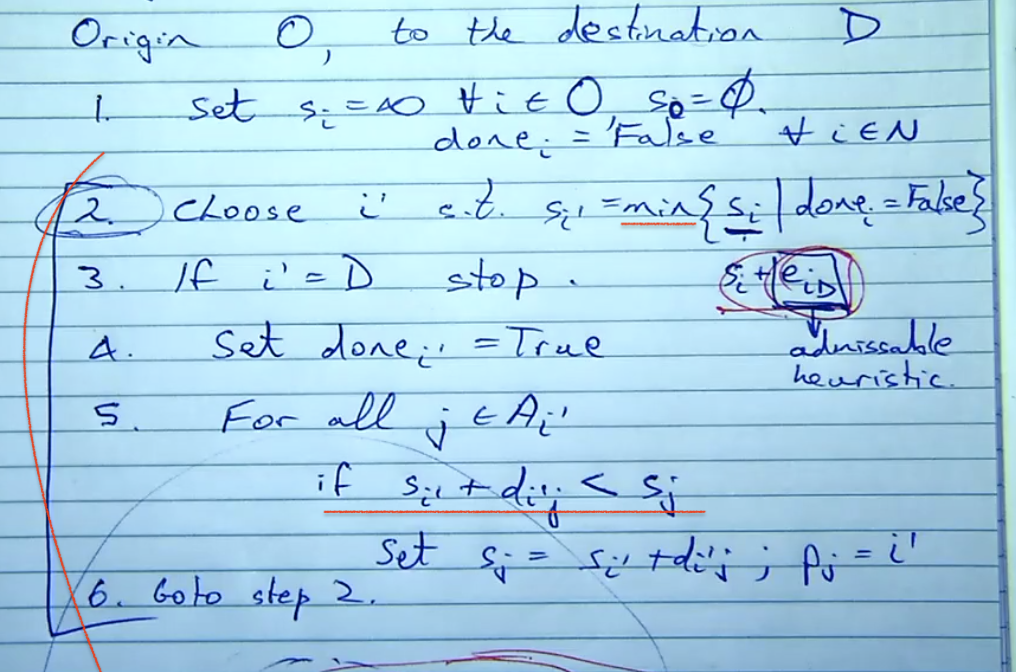 Origin O, to the destination D
1. Set sᵢ = ∞ ∀ i ∈ O, s₀ = ∅.
doneᵢ = False ∀ i ∈ N
2. Choose i' s.t. sᵢ' = min{sᵢ | doneᵢ = False}
3. If i' = D stop.
sᵢ + eᵢD
4. Set doneᵢ' = True
admissable
heuristic.
5. For all j ∈ Aᵢ'
if sᵢ' + dᵢ'ⱼ < sⱼ
Set sⱼ = sᵢ' + dᵢ'ⱼ ; pⱼ = i'
6. Goto step 2.